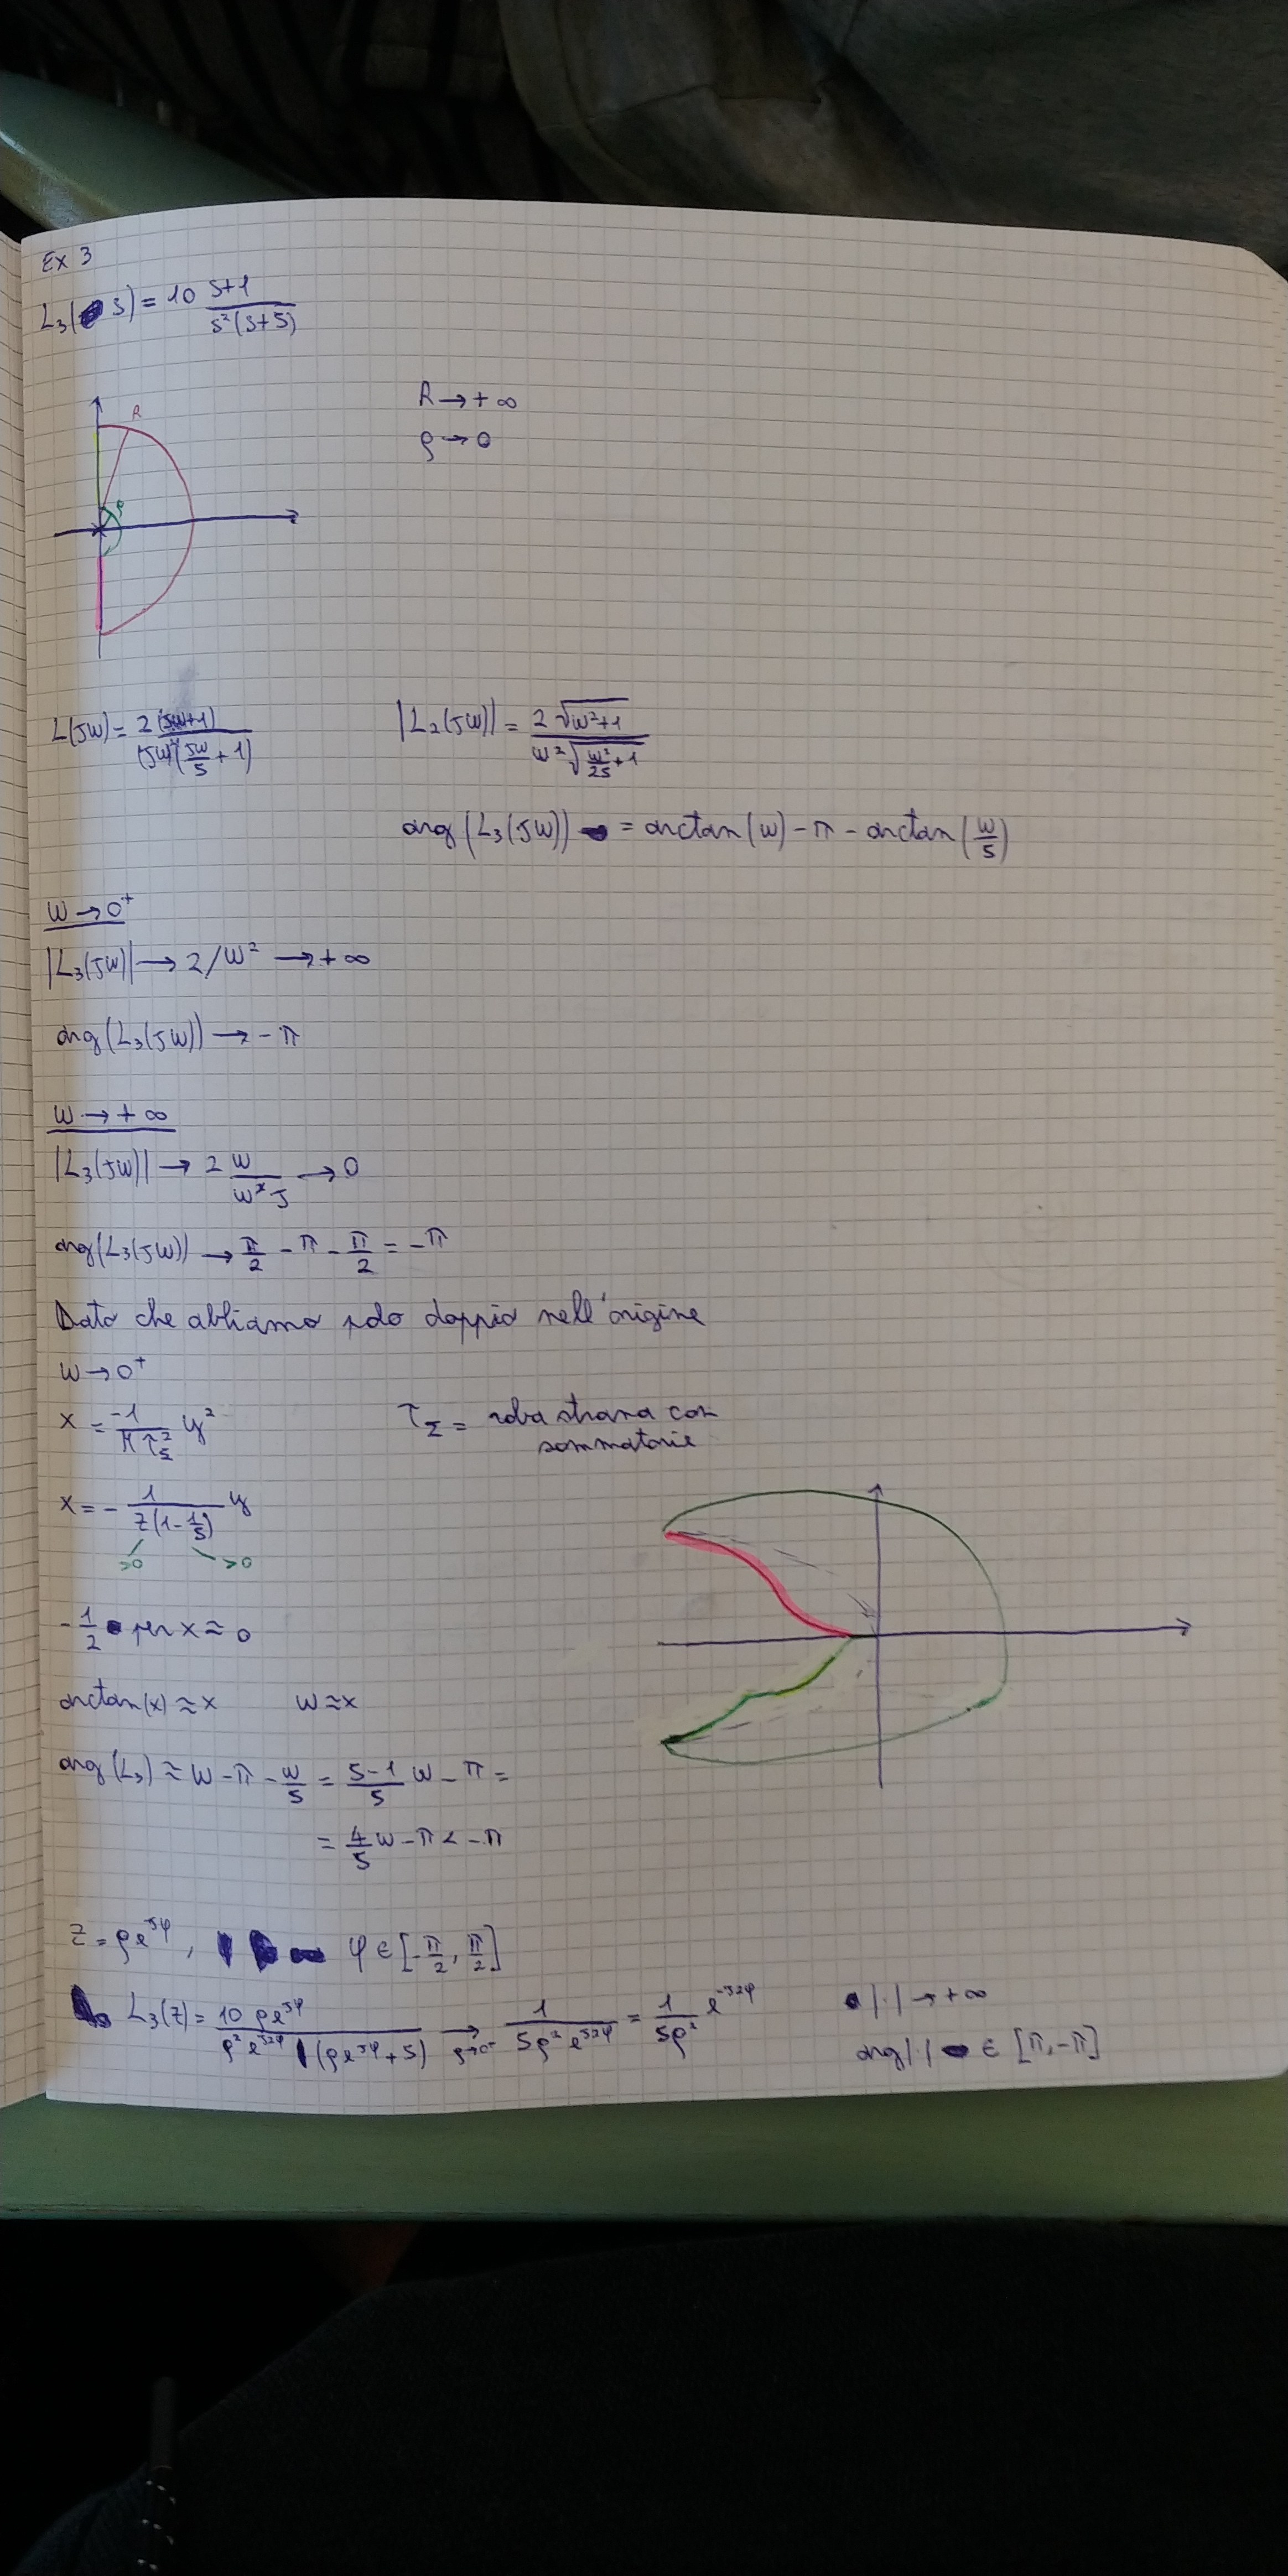 Ex 3
L₃(s) = 10 (s+1)/(s²(s+5))
R → +∞
ρ → 0
R
ρ
L(jω) = 2(jω+1)/((jω)²(jω/5 + 1))
|L₂(jω)| = 2√(ω²+1)/(ω²√(ω²/25 + 1))
arg(L₃(jω)) = arctan(ω) - π - arctan(ω/5)
ω → 0⁺
|L₃(jω)| → 2/ω² → +∞
arg(L₃(jω)) → -π
ω → +∞
|L₃(jω)| → 2 → 0
arg(L₃(jω)) → π/2 - π - π/2 = -π
Dato che abbiamo polo doppio nell'origine
ω → 0⁺
x = y²
τ_Σ = roba strana con
sommatorie
x = - 1/(2(1 - 1/5)) y
>0 >0
-1/2 per x ≈ 0
arctan(x) ≈ x ω ≈ x
arg(L₃) ≈ ω - π - ω/5 = (5-1)/5 ω - π =
= 4/5 ω - π < -π
z = ρe^{jφ}, φ ∈ [-π/2, π/2]
L₃(z) = 10 ρe^{jφ}/(ρ²e^{j2φ}(ρe^{jφ}+5)) →_{ρ→0⁺} 1/(5ρ²e^{j2φ}) = 1/(5ρ²) e^{-j2φ}
|·| → +∞
arg|·| ∈ [π, -π]